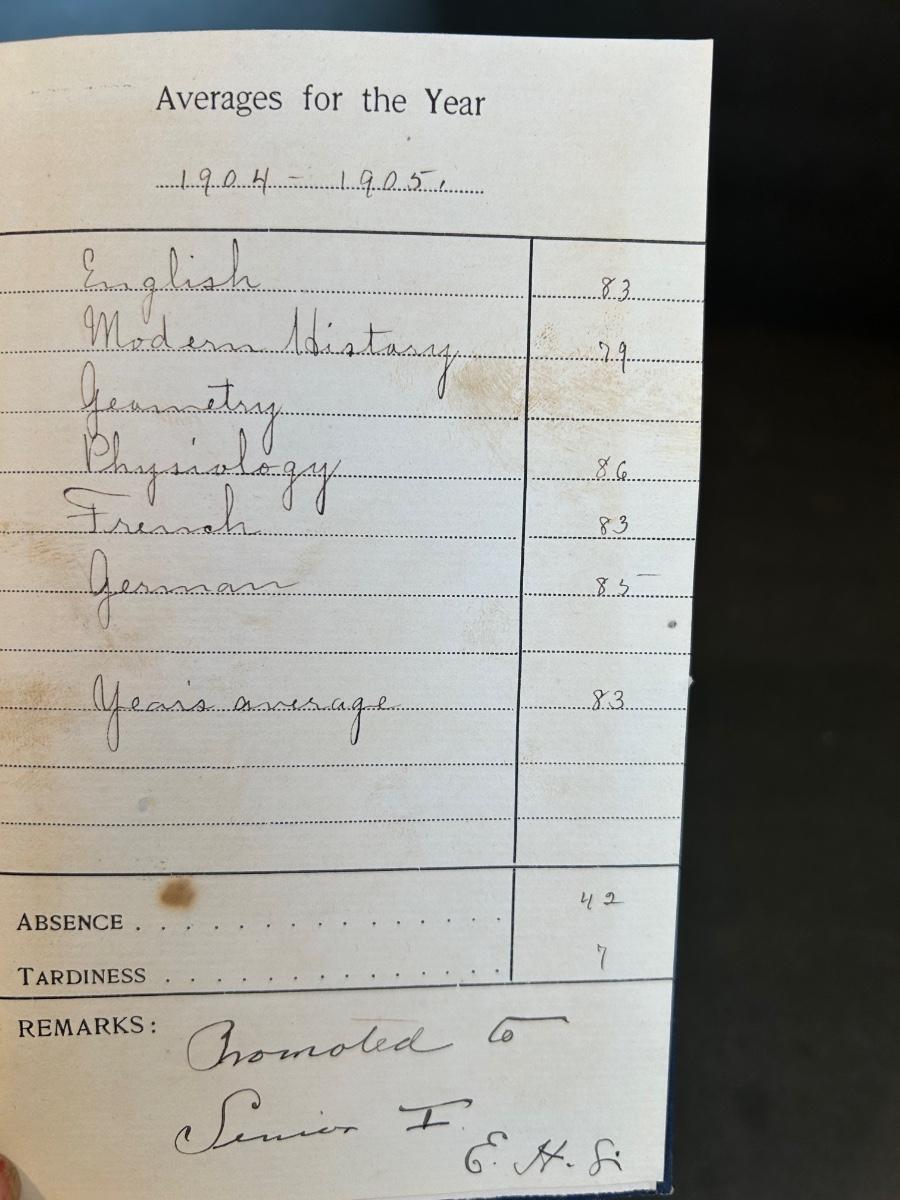 Averages for the Year
1904 - 1905.
English 83
Modern History 79
Geometry
Physiology 86
French 83
German 85
Year's average 83
ABSENCE . . . . . . . . . . . . . . . 42
TARDINESS . . . . . . . . . . . . . . 7
REMARKS: Promoted to
Senior I.
E. H.